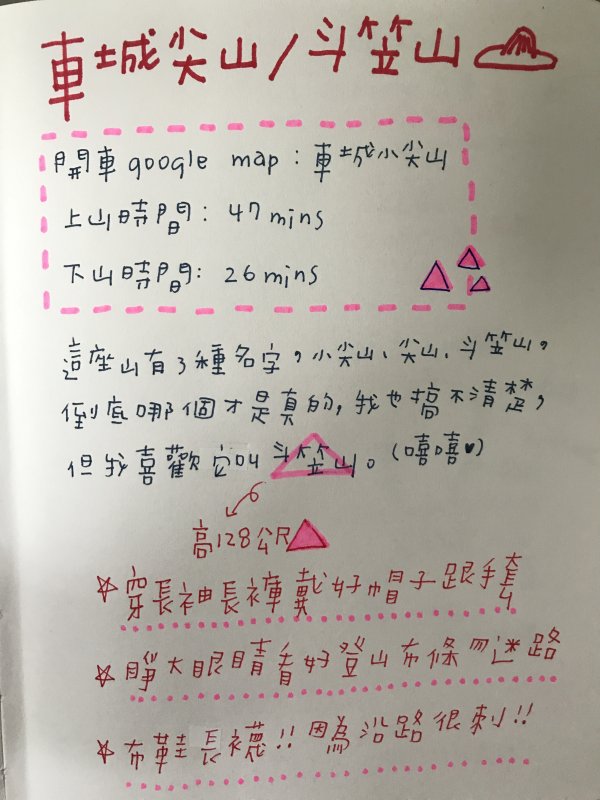 車城尖山/斗笠山
開車 google map：車城小尖山
上山時間：47 mins
下山時間：26 mins
這座山有3種名字，小尖山、尖山、斗笠山，
到底哪個才是真的，我也搞不清楚，
但我喜歡它叫斗笠山。(嘻嘻♥)
高128公尺
☆穿長袖長褲戴好帽子跟手套
☆睜大眼睛看好登山布條勿迷路
☆布鞋長襪!!因為沿路很刺!!